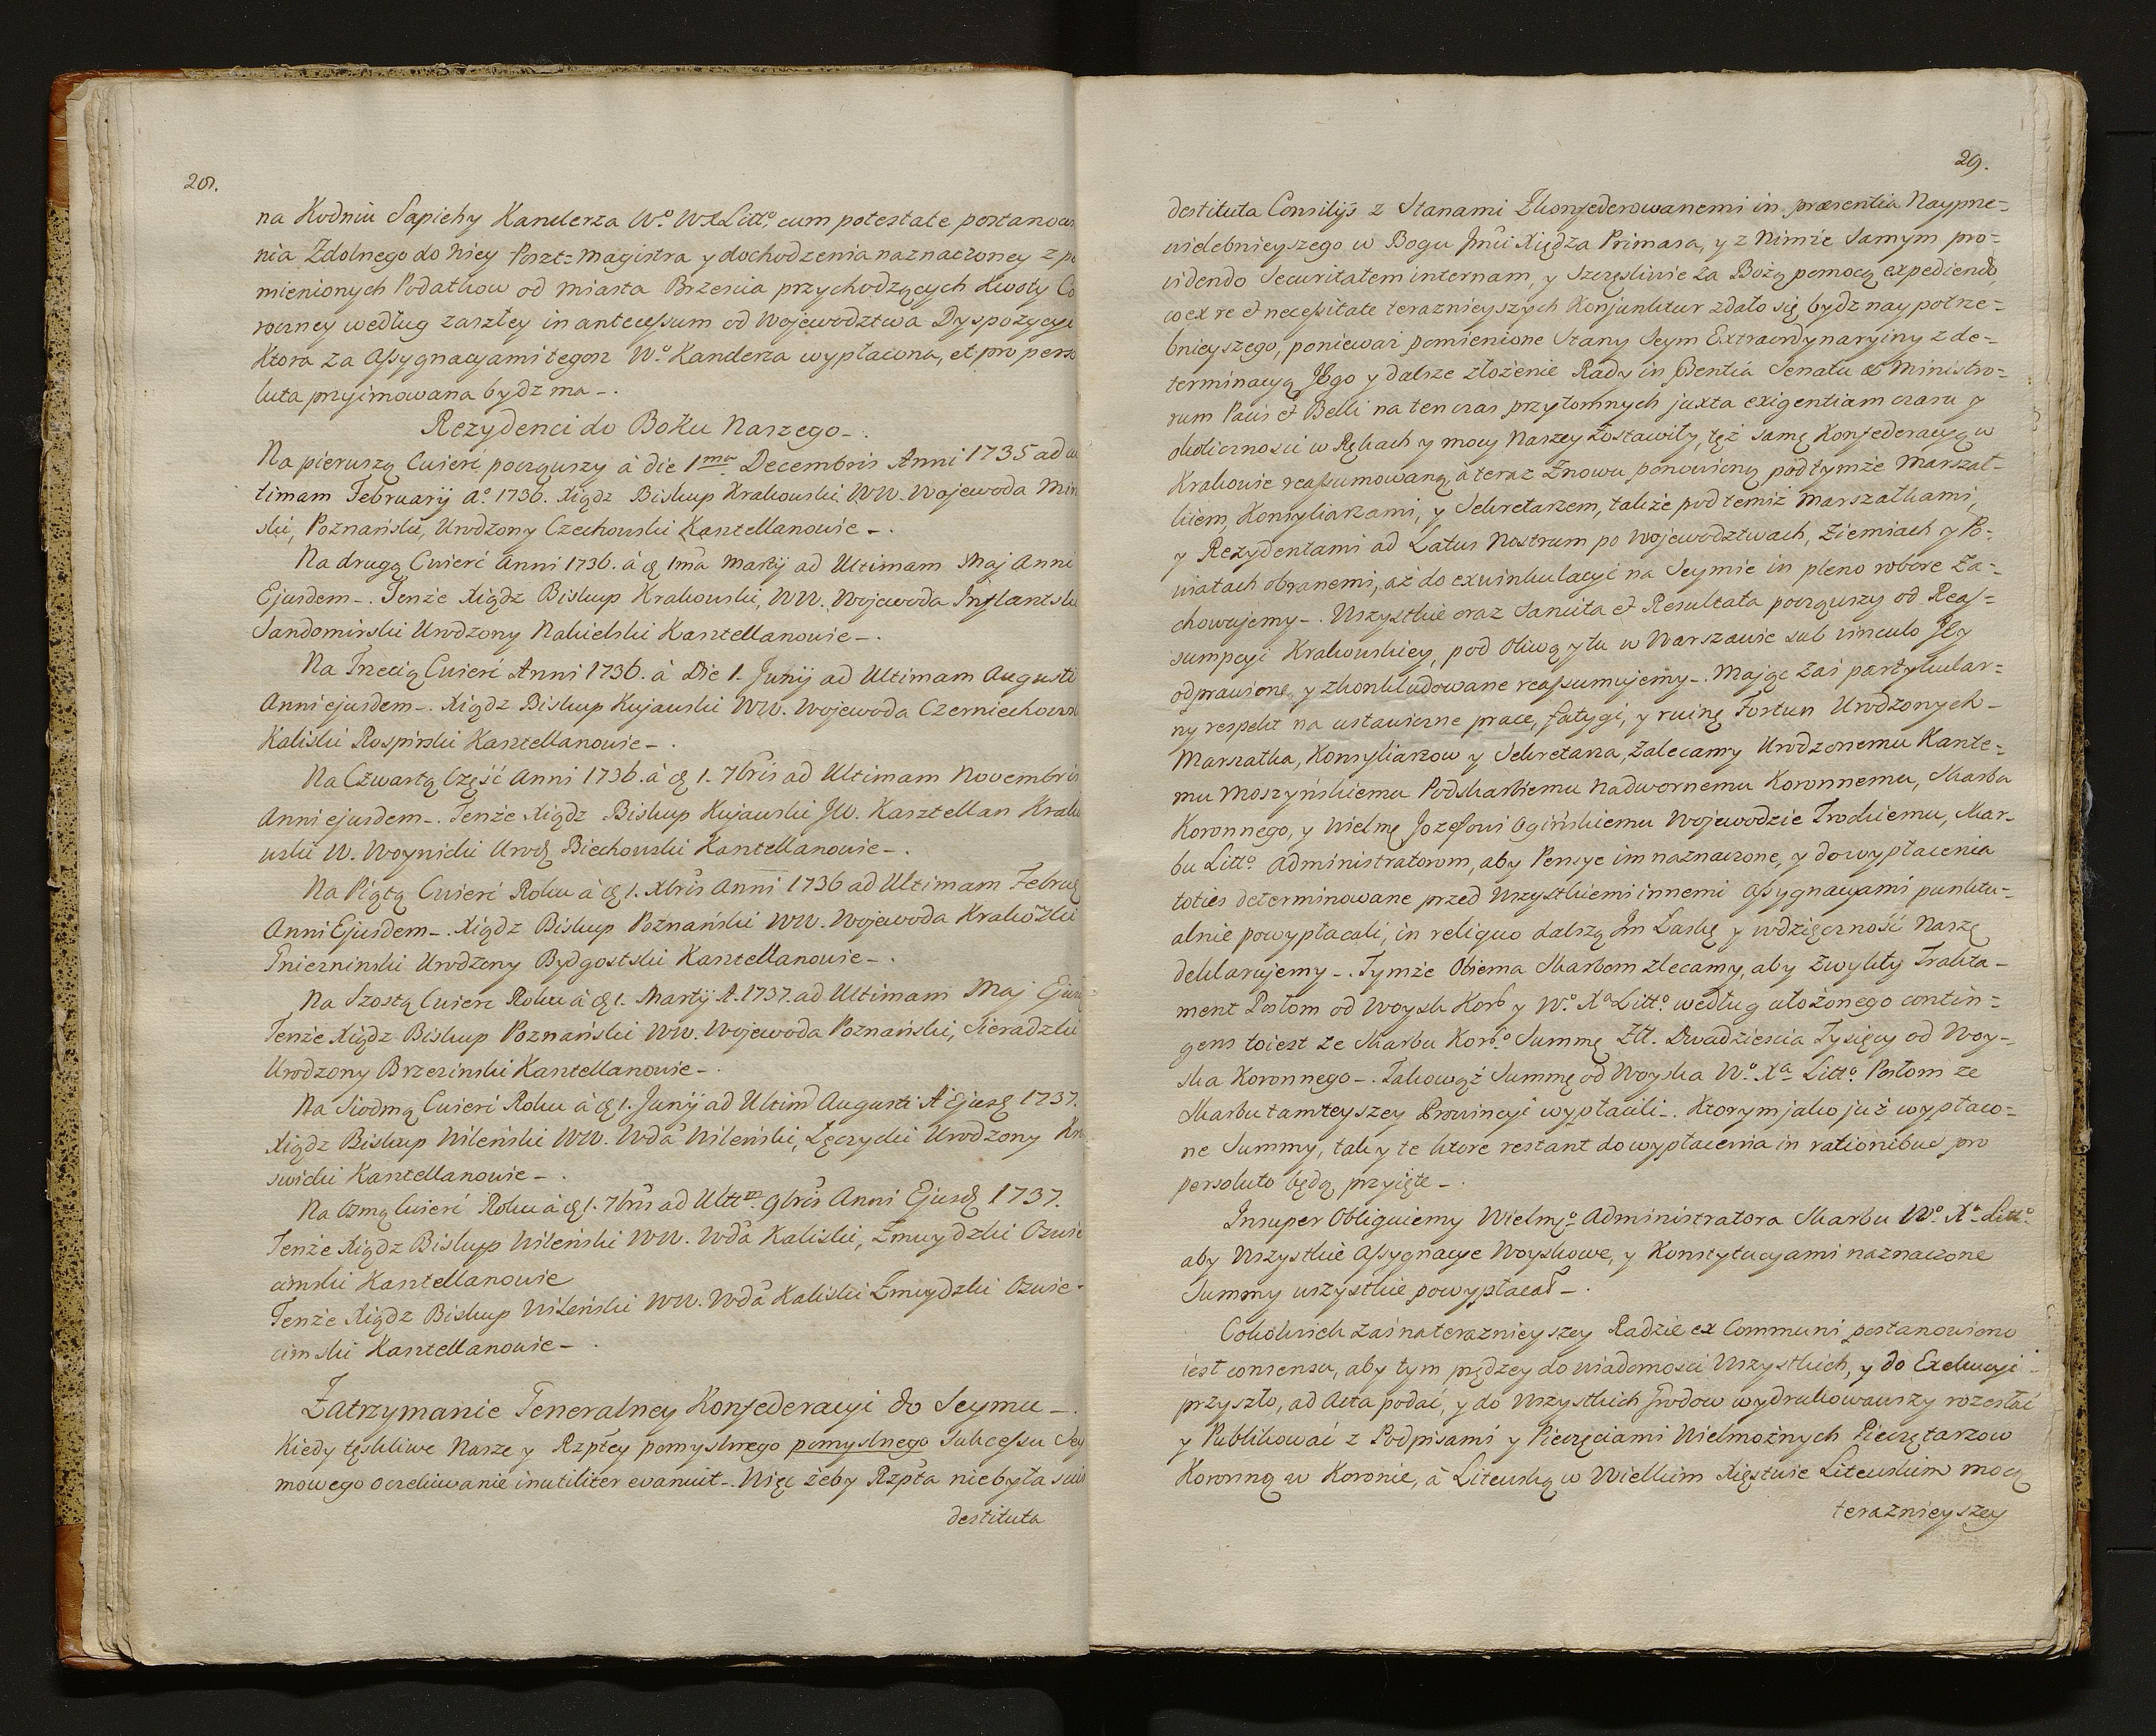 28.
na Kodniu Sapiehy Kanclerza W.º W.X.Littº, cum potestate postanowie
nia Zdolnego do niey Poszt=magistra y dochodzenia naznaczoney z po
mienionych Podatkow od miasta Brzescia przychodzących Kwoty Co
roczney według zaszłey in antecessum od Wojewodztwa Dyspozycyi
Ktora za Assygnacyami tegoż W.º Kanclerza wypłacona, et pro perso
luta przyimowana bydz ma -.
Rezydenci do Boku Naszego -.
Na pierwszą Cwierć począwszy à die 1ma Decembris Anni 1735 ad ul
timam February Aº 1736. Xiądz Biskup Krakowski, WW. Wojewoda Min
ski, Poznański, Urodzony Czechowski Kasztellanowie -.
Na drugą Cwierć Anni 1736. à d 1mâ Martij ad Ultimam Maj Anni
Ejusdem -. Tenże Xiądz Biskup Krakowski, WW. Wojewoda Inflantski
Sandomirski Urodzony Nakielski Kasztellanowie -.
Na Trzecią Cwierć Anni 1736. à Die 1. Junij ad Ultimam Augusti
Anni ejusdem -. Xiądz Biskup Kujawski WW. Wojewoda Czerniechows
Kaliski Rospirski Kasztellanowie -.
Na Czwartą Część Anni 1736. à d 1. 7bris ad Ultimam Novembris
Anni ejusdem -. Tenże Xiądz Biskup Kujawski JW. Kasztellan Krako
wski W. Woynicki Urod Biechowski Kasztellanowie -.
Na Piątą Cwierć Roku à d 1. Xbris Anni 1736 ad Ultimam Febru
Anni Ejusdem -. Xiądz Biskup Poznański WW. Wojewoda Krakowski
Gniezninski Urodzony Bydgostski Kasztellanowie -.
Na Szostą Cwierc Roku à d 1. Martij A. 1737. ad Ultimam Maj Ejus
Tenże Xiądz Biskup Poznański WW. Wojewoda Poznański, Sieradzki
Urodzony Brzezinski Kasztellanowie -.
Na Siodmą Cwierć Roku à d 1. Junij ad Ultim Augusti A Ejusd 1737.
Xiądz Biskup Wileński WW. Wda Wileński, Łęczycki Urodzony Kry
swicki Kasztellanowie -.
Na Osmą Cwierć Roku à d 1. 7bris ad Ultim 9bris Anni Ejusd 1737.
Tenże Xiądz Biskup Wileński WW. Wda Kaliski, Żmuydzki Oswie
cimski Kasztellanowie
Tenże Xiądz Biskup Wileński WW. Wda Kaliski Żmuydzki Oswie-
cimski Kasztellanowie -.
Zatrzymanie Generalney Konfederacyi do Seymu -.
Kiedy tęskliwe Nasze y Rzpłtey pomyslnego pomyslnego Sukcessu Sey
mowego oczekiwanie inutiliter evanuit -. Więc żeby Rzpta niebyła suis
destituta
29.
destituta Consilijs z Stanami Zkonfederowanemi in præsentia Nayprze-
wielebnieyszego w Bogu Jmći Xiędza Primasa, y z Nimże Samym pro-
videndo Securitatem internam, y szczęśliwie za Bożą pomocą expediendo
co ex re et necessitate teraznieyszych Konjunktur zdało się bydz naypotrze-
bnieyszego, ponieważ pomienione Stany Seym Extraordynaryiny z de-
terminacyą Jego y dalsze złożenie Rady in sdentiâ Senatu et Ministro-
rum Pacis et Belli na ten czas przytomnych juxta exigentiam czasu y
okoliczności w Rękach y mocy Naszey Zostawiły, też samę Konfederacyą w
Krakowie reassumowaną à teraz Znowu ponowioną pod tymże Marszał-
kiem, Konsyliarzami, y Sekretarzem, także pod temiż Marszałkami,
y Rezydentami ad Latus Nostrum po Wojewodztwach, Ziemiach y Po-
wiatach obranemi, aż do exwinkulacyi na Seymie in pleno robore Za-
chowujemy -. Wszystkie oraz Sancita et Resultata począwszy od Reas-
sumpcyi Krakowskiey, pod Oliwą y tu w Warszawie sub vinculo Jey
odprawione y zkonkludowane reassumujemy -. Mając Zaś partykular-
ny respekt na ustawiczne prace, fatygi, y ruinę Fortun Urodzonych -
Marszałka, Konsyliarzow y Sekretarza, Zalecamy Urodzonemu Kante-
mu Moszyńskiemu Podskarbiemu Nadwornemu Koronnemu, Skarbu
Koronnego, y Wielmę Jozefowi Ogińskiemu Wojewodzie Trockiemu, Skar-
bu Littº Administratorom, aby Pensye im naznaczone, y do wypłacenia
toties determinowane przed Wszystkiemi innemi Assygnacyami punktu-
alnie powypłacali, in reliquo dalszą Im Łaskę y wdzięczność Naszę
deklarujemy -. Tymże Obiema Skarbom zlecamy, aby Zwykły Trakta-
ment Posłom od Woysk Kor y W.º Xª Littº według ułożonego contin-
gens toiest ze Skarbu Korº Summę Zł. Dwadziescia Tysięcy od Woy-
ska Koronnego -. Takowąż Summę od Woyska W.º Xª Littº Posłom ze
Skarbu tamteyszey Prowincyi wypłacili -. Ktorym jako już wypłaco-
ne Summy, tak y te ktore restant do wypłacenia in rationibus pro
persoluto będą przyięte -.
Insuper Obliguiemy Wielmº Administratora Skarbu Wº Xª Littº
aby Wszystkie Assygnacye Woyskowe, y Konstytucyami naznaczone
Summy wszystkie powypłacał -.
Cokolwiek Zaś na teraznieyszey Radzie ex Communi postanowiono
iest consensu, aby tym prędzey do wiadomości Wszystkich, y do Exekucyi
przyszło, ad Acta podać, y do Wszystkich Grodow wydrukowawszy rozesłać
y Publikować z Podpisami y Pieczęciami Wielmożnych Pieczętarzow
Koronną w Koronie, à Litewską w Wielkim Xięstwie Litewskim mocą
teraznieyszey